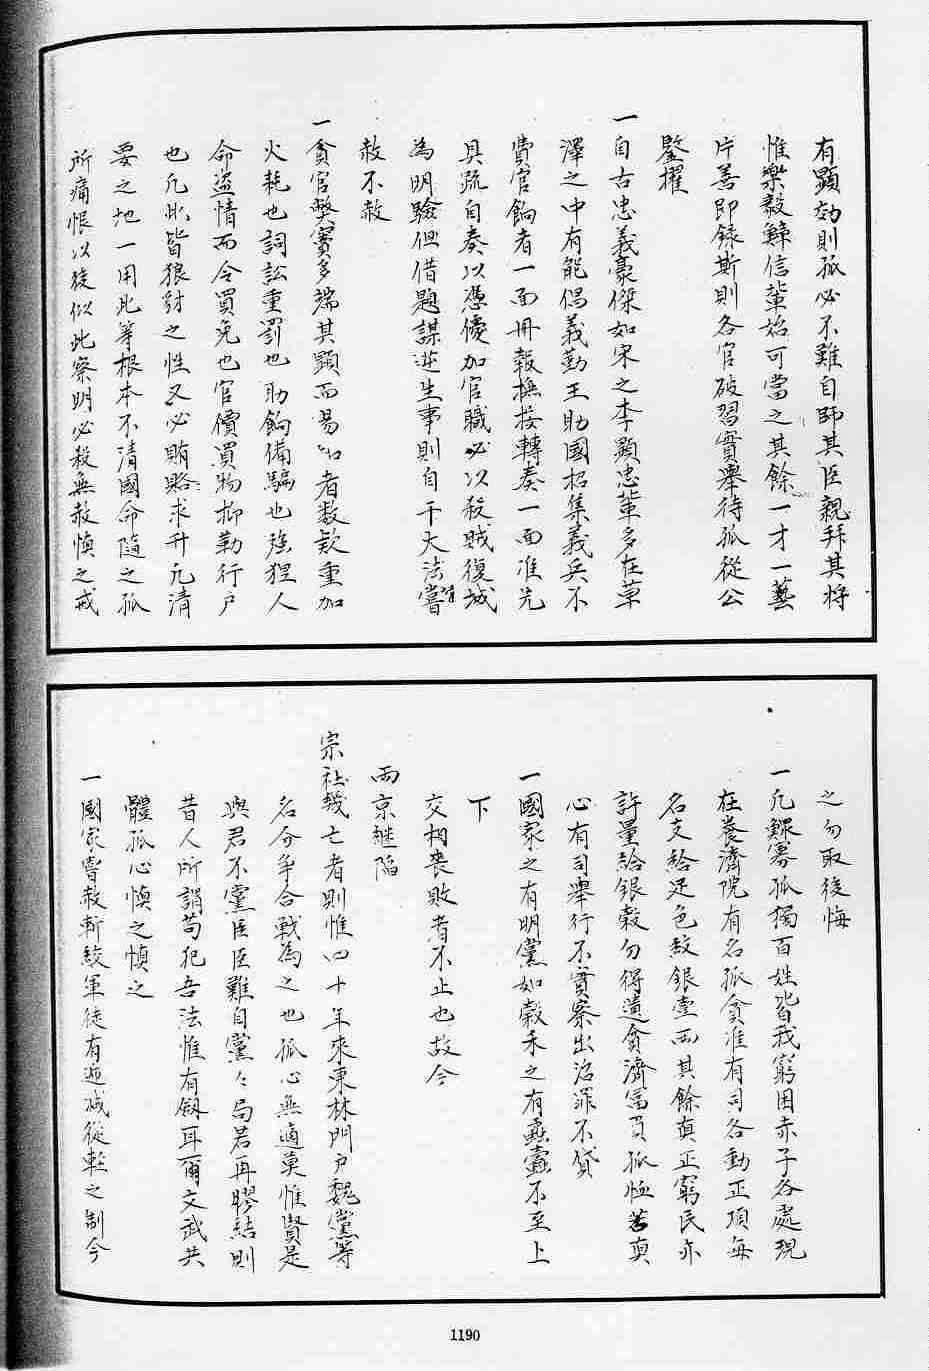 有顯効則孤必不難自師其臣親拜其将
惟樂毅鯨信輩始可當之其餘一才一藝
片善即錄斯則各官破習實舉待孤從公
鑒擢
一自古忠義豪傑如宋之李顯忠輩多在草
澤之中有能倡義勤王助國招集義兵不
費官餉者一面冊報撫按轉奏一面准先
具疏自奏以憑優加官職必以殺賊復城
為明驗但借題謀逆生事則自干大法嘗
赦不赦
一貪官獘竇多端其顯而易知者数欵重加
火耗也詞訟重罰也助餉備騙也強狸人
命盗情而令買免也官價買物抑勒行户
也凡此皆狼豺之性又必賄賂求升凡清
要之地一用此等根本不清國命隨之孤
所痛恨以後似此察明必殺無赦慎之戒
之勿取後悔
一凡鰥寡孤獨百姓皆我窮困赤子各處現
在養濟院有名孤貧准有司各動正項每
名支給足色紋銀壹両其餘真正窮民亦
許量給銀穀勿得遺貧濟冨負孤恤苦真
心有司舉行不實察出治罪不貸
一國家之有明黨如穀禾之有蟊蠹不至上
下
交相喪敗者不止也故今
両京継陷
宗社幾亡者則惟四十年來東林門户魏黨等
名分爭合戰為之也孤心無適莫惟賢是
與君不黨臣臣難自黨々局若再膠結則
昔人所謂苟犯吾法惟有劔耳爾文武共
體孤心慎之慎之
一國家嘗赦斬絞軍徒有逓减從輕之制今
1190